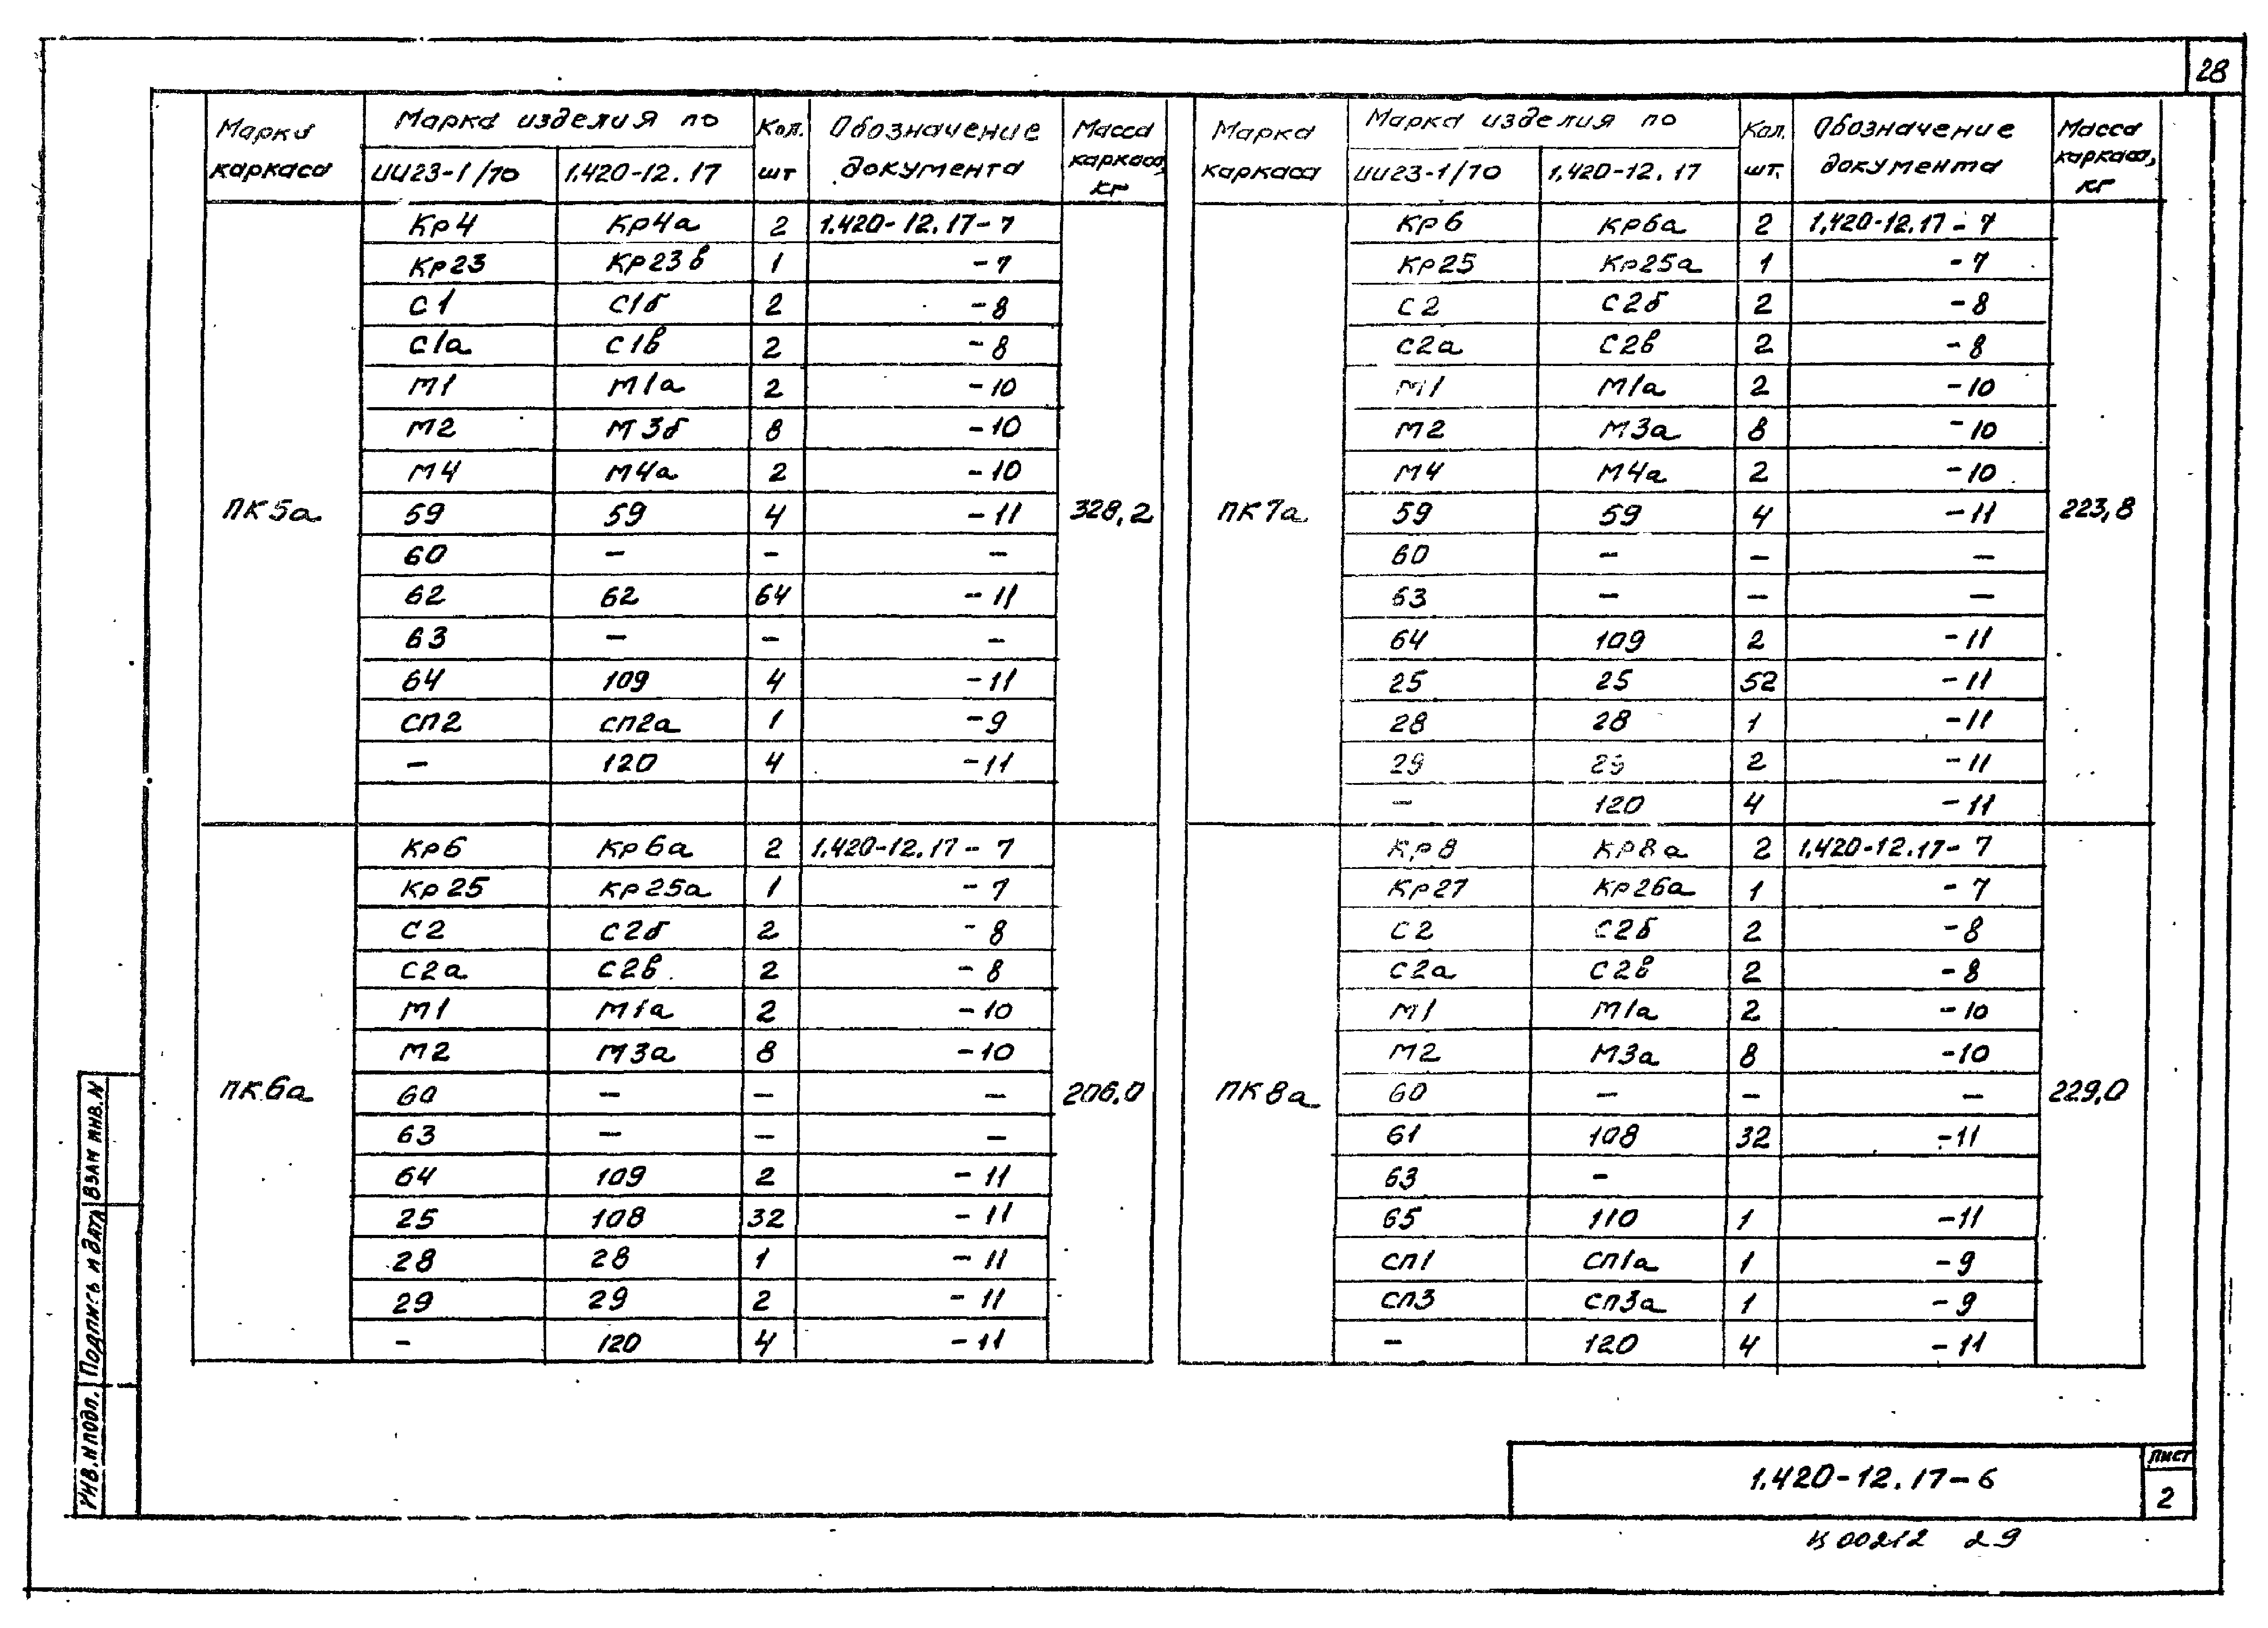 28
Марка каркаса | Марка изделия по | Кол. шт | Обозначение документа | Масса каркаса, кг
ИИ23-1/70 | 1.420-12.17
ПК5а | 328,2
Кр4 | Кр4а | 2 | 1.420-12.17-7
Кр23 | Кр23в | 1 | -7
С1 | С1б | 2 | -8
С1а | С1в | 2 | -8
М1 | М1а | 2 | -10
М2 | М3б | 8 | -10
М4 | М4а | 2 | -10
59 | 59 | 4 | -11
60 | - | - | -
62 | 62 | 64 | -11
63 | - | - | -
64 | 109 | 4 | -11
СП2 | СП2а | 1 | -9
- | 120 | 4 | -11
ПК6а | 206,0
Кр6 | Кр6а | 2 | 1.420-12.17-7
Кр25 | Кр25а | 1 | -7
С2 | С2б | 2 | -8
С2а | С2в | 2 | -8
М1 | М1а | 2 | -10
М2 | М3а | 8 | -10
60 | - | - | -
63 | - | - | -
64 | 109 | 2 | -11
25 | 108 | 32 | -11
28 | 28 | 1 | -11
29 | 29 | 2 | -11
- | 120 | 4 | -11
Марка каркаса | Марка изделия по | Кол. шт. | Обозначение документа | Масса каркаса, кг
ИИ23-1/70 | 1.420-12.17
ПК7а | 223,8
Кр6 | Кр6а | 2 | 1.420-12.17-7
Кр25 | Кр25а | 1 | -7
С2 | С2б | 2 | -8
С2а | С2в | 2 | -8
М1 | М1а | 2 | -10
М2 | М3а | 8 | -10
М4 | М4а | 2 | -10
59 | 59 | 4 | -11
60 | - | - | -
63 | - | - | -
64 | 109 | 2 | -11
25 | 25 | 52 | -11
28 | 28 | 1 | -11
29 | 29 | 2 | -11
- | 120 | 4 | -11
ПК8а | 229,0
Кр8 | Кр8а | 2 | 1.420-12.17-7
Кр27 | Кр26а | 1 | -7
С2 | С2б | 2 | -8
С2а | С2в | 2 | -8
М1 | М1а | 2 | -10
М2 | М3а | 8 | -10
60 | - | - | -
61 | 108 | 32 | -11
63 | -
65 | 110 | 1 | -11
СП1 | СП1а | 1 | -9
СП3 | СП3а | 1 | -9
- | 120 | 4 | -11
Инв. N подл. | Подпись и дата | Взам инв. N
1.420-12.17-6
Лист
2
00212 29